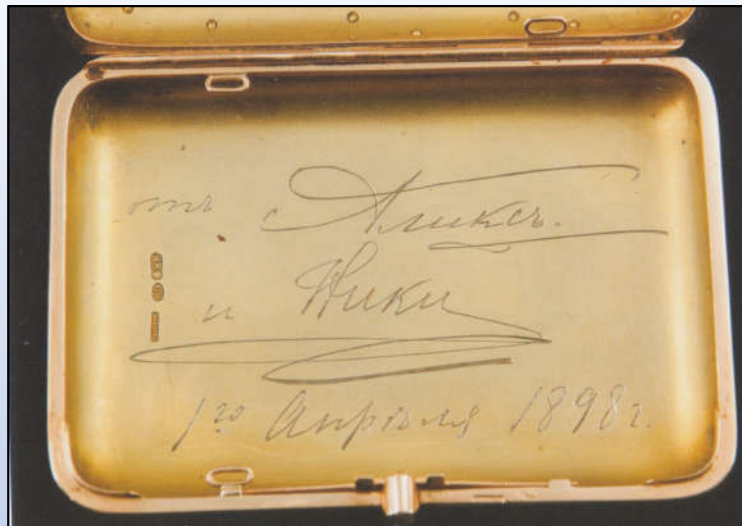 отъ Аликсъ.
и Ники
1го Апрѣля 1898г.